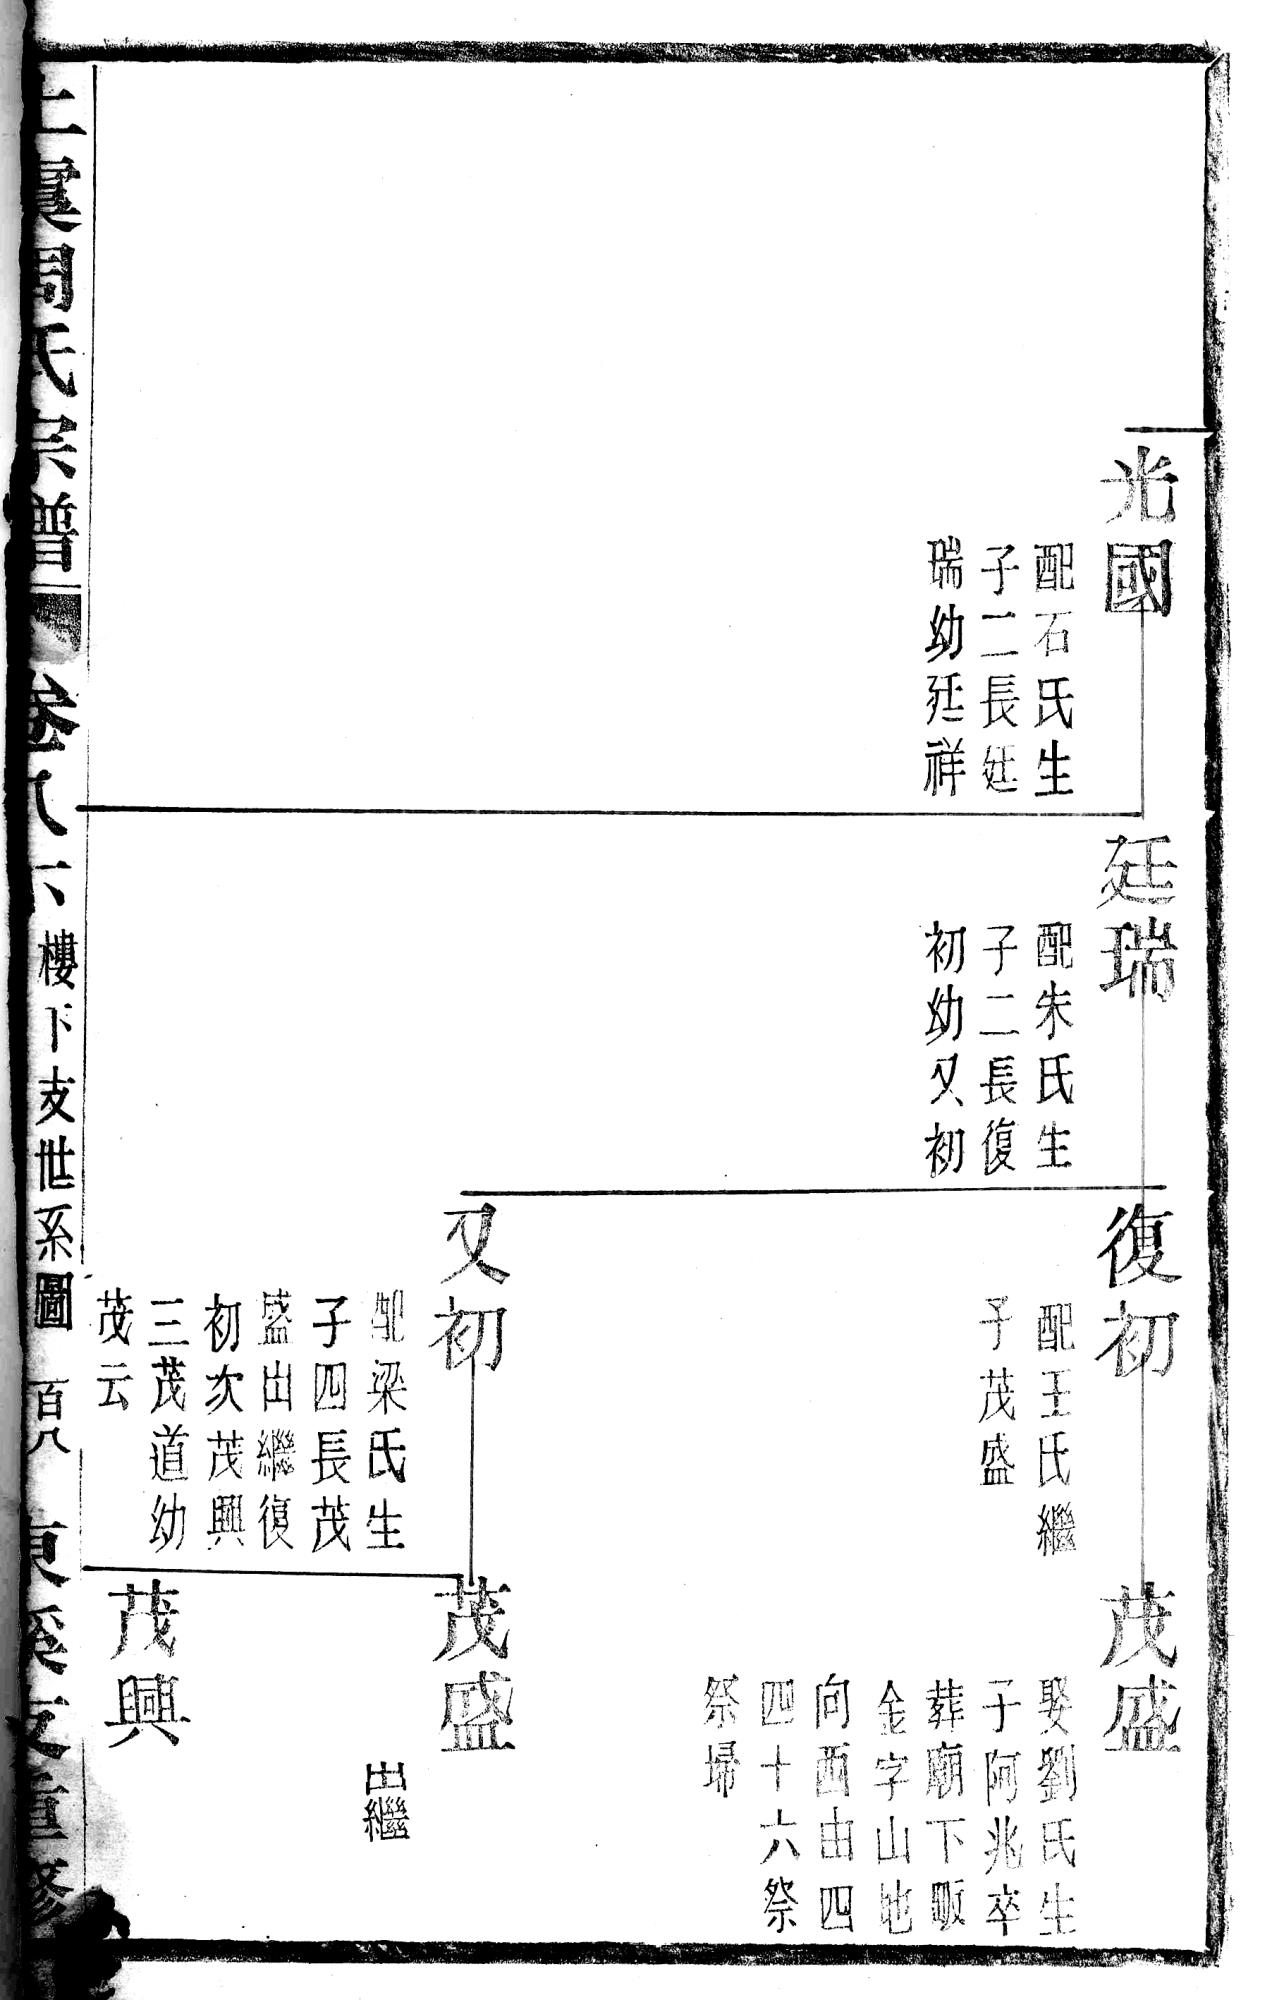 光國
配石氏生
子二長廷
瑞幼廷祥
廷瑞
配朱氏生
子二長復
初幼又初
復初
配王氏繼
子茂盛
又初
配梁氏生
子四長茂
盛出繼復
初次茂興
三茂道幼
茂云
茂盛
娶劉氏生
子阿兆卒
葬廟下畈
金字山地
向西由四
四十六祭
祭掃
茂盛
出繼
茂興
上虞周氏宗譜
卷八下
樓下支世系圖
百八
東溪支重修